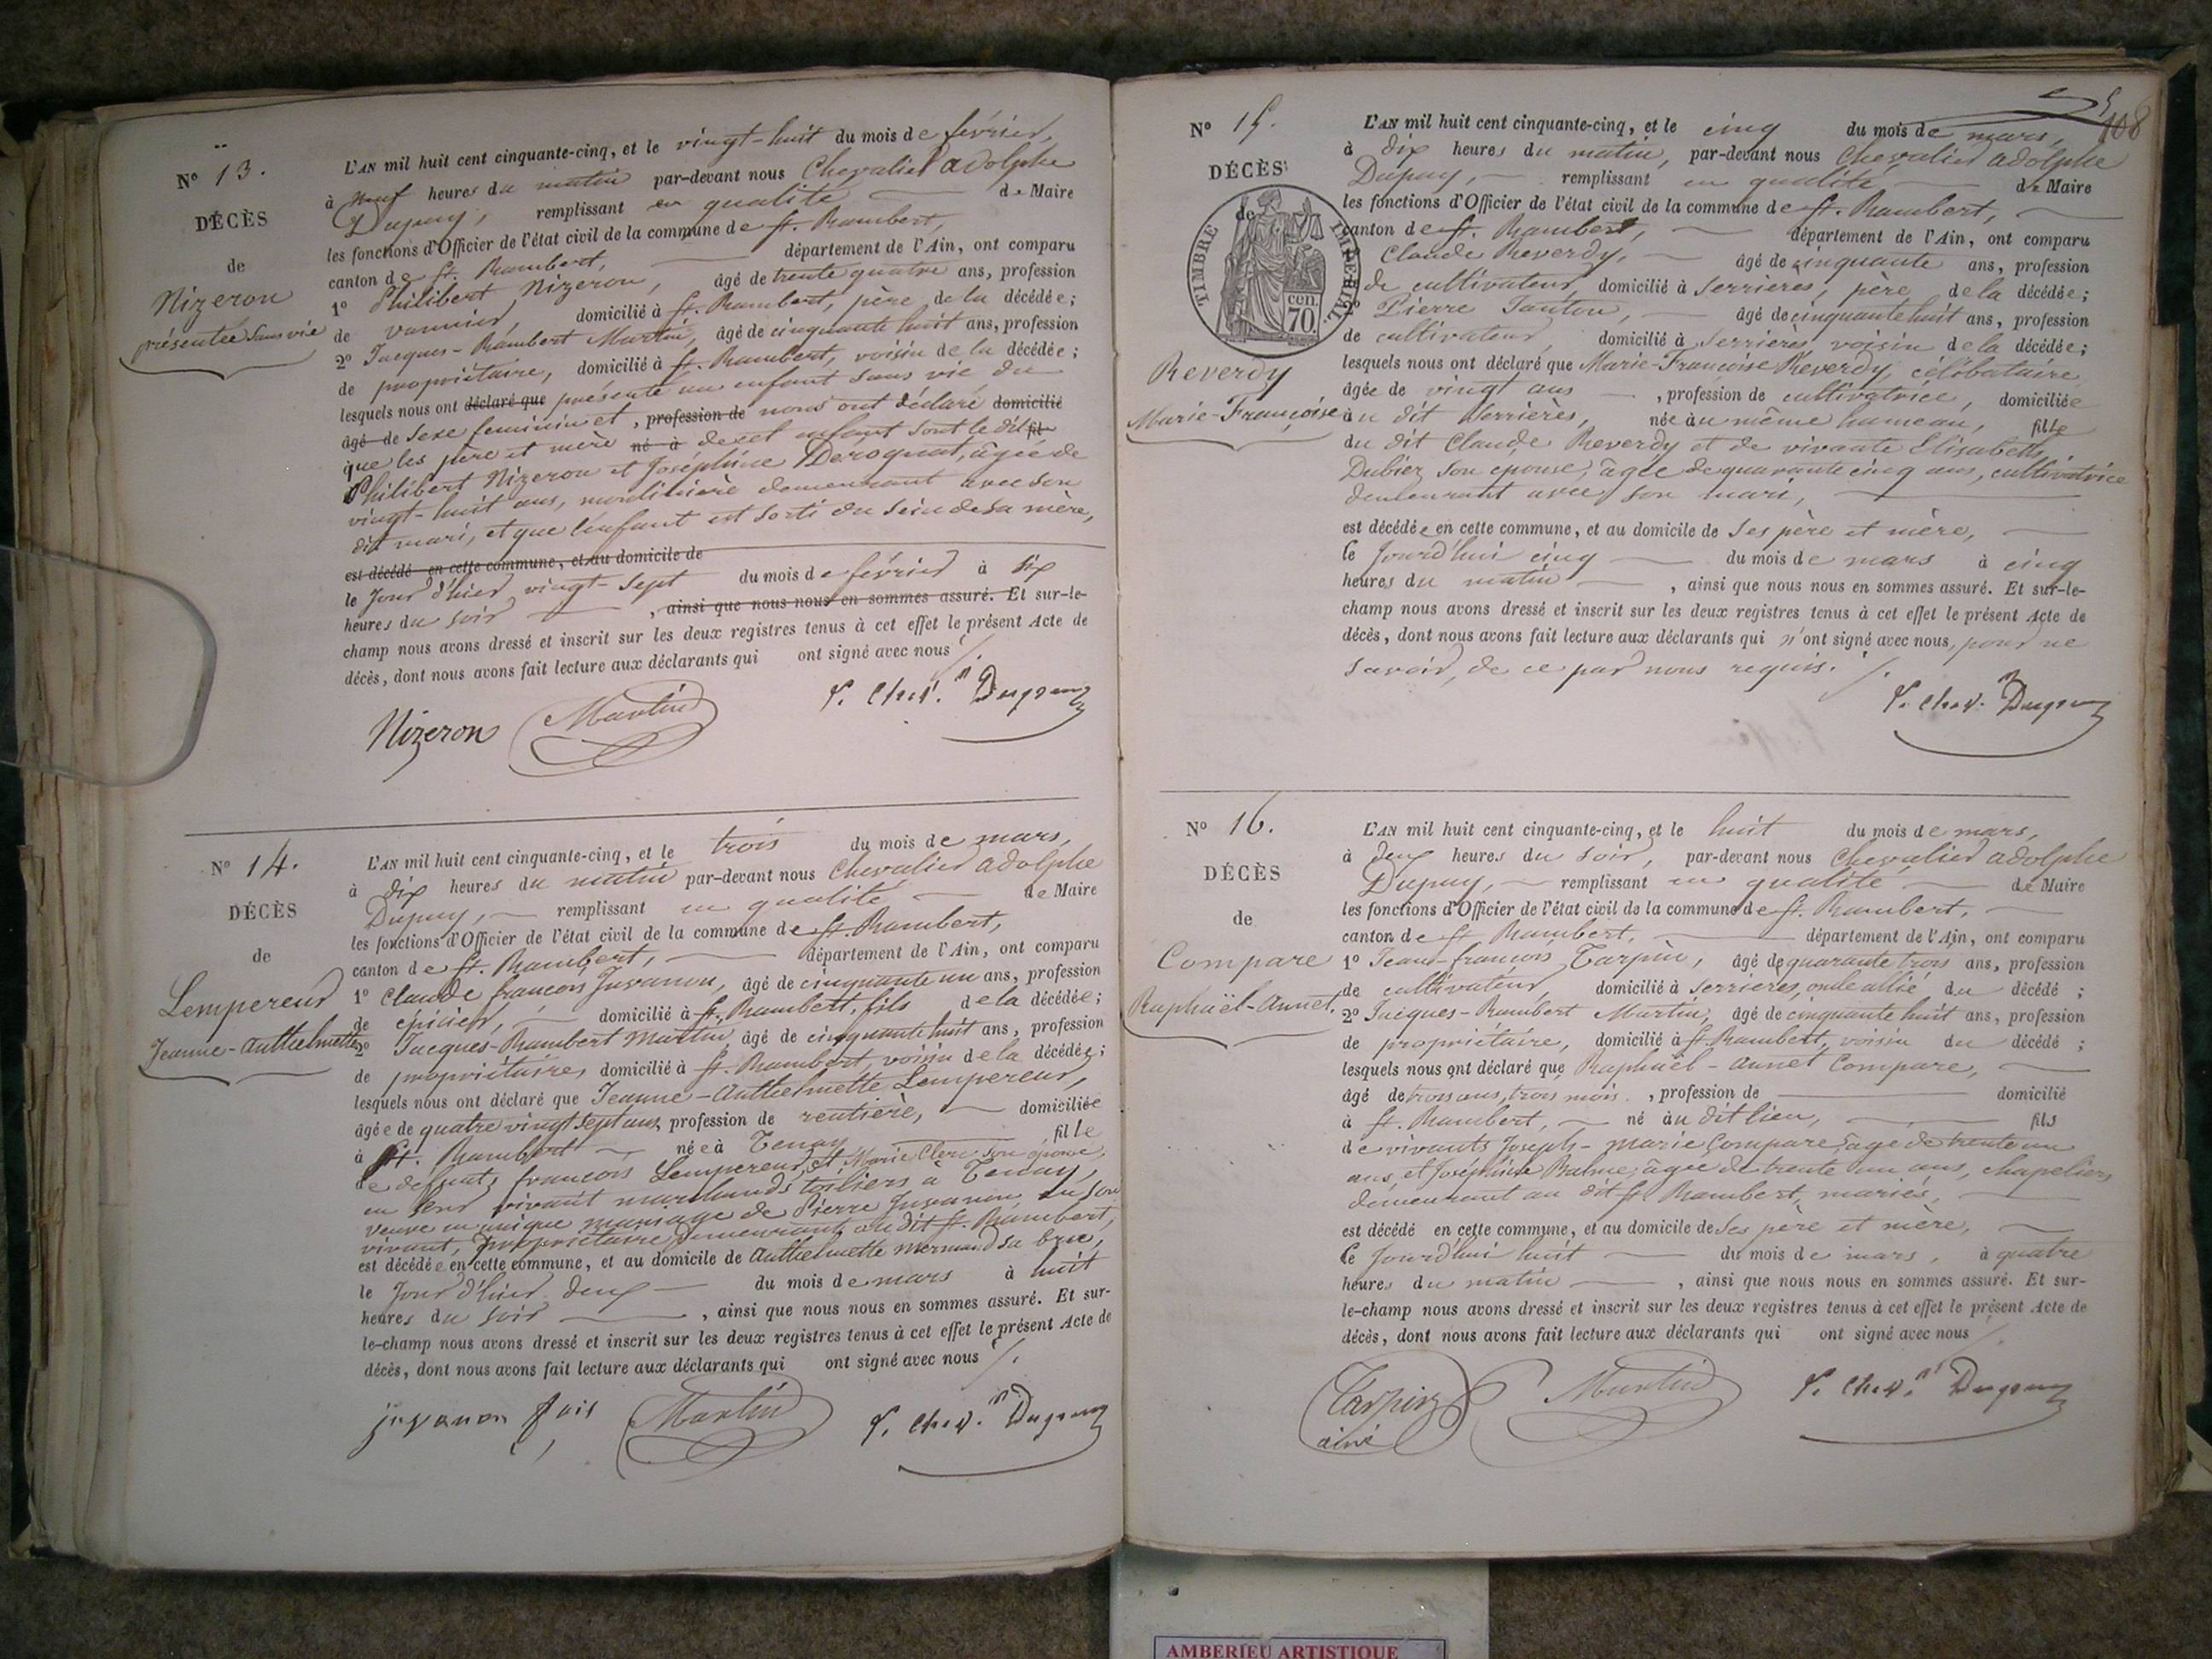 N° 13.
DÉCÈS
de
Nizeron
présentée sans vie
L'AN mil huit cent cinquante-cinq, et le vingt-huit du mois de février,
à neuf heures du matin par-devant nous Chevalier Adolphe
Dupuy, remplissant en qualité de Maire
les fonctions d'Officier de l'état civil de la commune de St. Rambert,
canton de St. Rambert, département de l'Ain, ont comparu
1° Philibert Nizeron, âgé de trente quatre ans, profession
de vannier, domicilié à St. Rambert, père de la décédée;
2° Jacques-Rambert Martin, âgé de cinquante huit ans, profession
de propriétaire, domicilié à St. Rambert, voisin de la décédée;
lesquels nous ont déclaré que présenté un enfant sans vie du
âgé de sexe féminin et, profession de nous ont déclaré domicilié
que les père et mère né à de cet enfant sont le dit fil
Philibert Nizeron et Joséphine Derognat, âgée de
vingt-huit ans, demeurant avec son
dit mari, et que l'enfant est sorti du sein de sa mère,
est décédé en cette commune, et au domicile de
le jour d'hier vingt-sept du mois de février à six
heures du soir, ainsi que nous nous en sommes assuré. Et sur-le-
champ nous avons dressé et inscrit sur les deux registres tenus à cet effet le présent Acte de
décès, dont nous avons fait lecture aux déclarants qui ont signé avec nous ./.
Nizeron Martin Chev. Dupuy
N° 14.
DÉCÈS
de
Lempereur
Jeanne-Anthelmette
L'AN mil huit cent cinquante-cinq, et le trois du mois de mars,
à dix heures du matin par-devant nous Chevalier Adolphe
Dupuy, remplissant en qualité de Maire
les fonctions d'Officier de l'état civil de la commune de St. Rambert,
canton de St. Rambert, département de l'Ain, ont comparu
1° Claude françois Juvanon, âgé de cinquante un ans, profession
de épicier, domicilié à St. Rambert, fils de la décédée;
2° Jacques-Rambert Martin, âgé de cinquante huit ans, profession
de propriétaire, domicilié à St. Rambert, voisin de la décédée;
lesquels nous ont déclaré que Jeanne-Anthelmette Lempereur,
âgée de quatre vingt sept ans, profession de rentière, domiciliée
à St. Rambert, née à Tenay fille
de défunts françois Lempereur, et Marie Clerc son épouse,
en leur vivant marchands toiliers à Tenay,
veuve en unique mariage de Pierre Juvanon en son
vivant, propriétaire demeurant au dit St. Rambert,
est décédée en cette commune, et au domicile de Anthelmette Mermand sa bru,
le jour d'hier deux du mois de mars à huit
heures du soir, ainsi que nous nous en sommes assuré. Et sur-
le-champ nous avons dressé et inscrit sur les deux registres tenus à cet effet le présent Acte de
décès, dont nous avons fait lecture aux déclarants qui ont signé avec nous ./.
juvanon Martin Chev. Dupuy
108
N° 15.
DÉCÈS
de
TIMBRE IMPERIAL
cen.
70.
Reverdy
Marie-Françoise
L'AN mil huit cent cinquante-cinq, et le cinq du mois de mars,
à dix heures du matin, par-devant nous Chevalier Adolphe
Dupuy, remplissant en qualité de Maire
les fonctions d'Officier de l'état civil de la commune de St. Rambert,
canton de St. Rambert, département de l'Ain, ont comparu
Claude Reverdy, âgé de cinquante ans, profession
de cultivateur, domicilié à Serrières, père de la décédée;
Pierre Tanton, âgé de cinquante huit ans, profession
de cultivateur, domicilié à Serrières, voisin de la décédée;
lesquels nous ont déclaré que Marie-Françoise Reverdy, célibataire,
âgée de vingt ans, profession de cultivatrice, domiciliée
au dit Serrières, née au même hameau, fille
du dit Claude Reverdy et de vivante Elisabeth
Dubiez son épouse, âgée de quarante cinq ans, cultivatrice
demeurant avec son mari,
est décédée en cette commune, et au domicile de ses père et mère,
le jourd'hui cinq du mois de mars à cinq
heures du matin, ainsi que nous nous en sommes assuré. Et sur-le-
champ nous avons dressé et inscrit sur les deux registres tenus à cet effet le présent Acte de
décès, dont nous avons fait lecture aux déclarants qui n'ont signé avec nous, pour ne
savoir, de ce par nous requis. ./.
Chev. Dupuy
N° 16.
DÉCÈS
de
Compare
Raphaël-Annet.
L'AN mil huit cent cinquante-cinq, et le huit du mois de mars,
à deux heures du soir, par-devant nous Chevalier Adolphe
Dupuy, remplissant en qualité de Maire
les fonctions d'Officier de l'état civil de la commune de St. Rambert,
canton de St. Rambert, département de l'Ain, ont comparu
1° Jean-françois Tarpin, âgé de quarante trois ans, profession
de cultivateur, domicilié à Serrières, oncle allié du décédé;
2° Jacques-Rambert Martin, âgé de cinquante huit ans, profession
de propriétaire, domicilié à St. Rambert, voisin du décédé;
lesquels nous ont déclaré que Raphaël-Annet Compare,
âgé de trois ans, trois mois, profession de domicilié
à St. Rambert, né au dit lieu, fils
de vivants Joseph-Marie Compare, âgé de trente un
ans, et Joséphine Balme, âgée de trente un ans, chapeliers
demeurant au dit St Rambert, mariés,
est décédé en cette commune, et au domicile de ses père et mère,
le jourd'hui huit du mois de mars, à quatre
heures du matin, ainsi que nous nous en sommes assuré. Et sur-
le-champ nous avons dressé et inscrit sur les deux registres tenus à cet effet le présent Acte de
décès, dont nous avons fait lecture aux déclarants qui ont signé avec nous ./.
Tarpin Martin Chev. Dupuy
ainé
AMBERIEU ARTISTIQUE